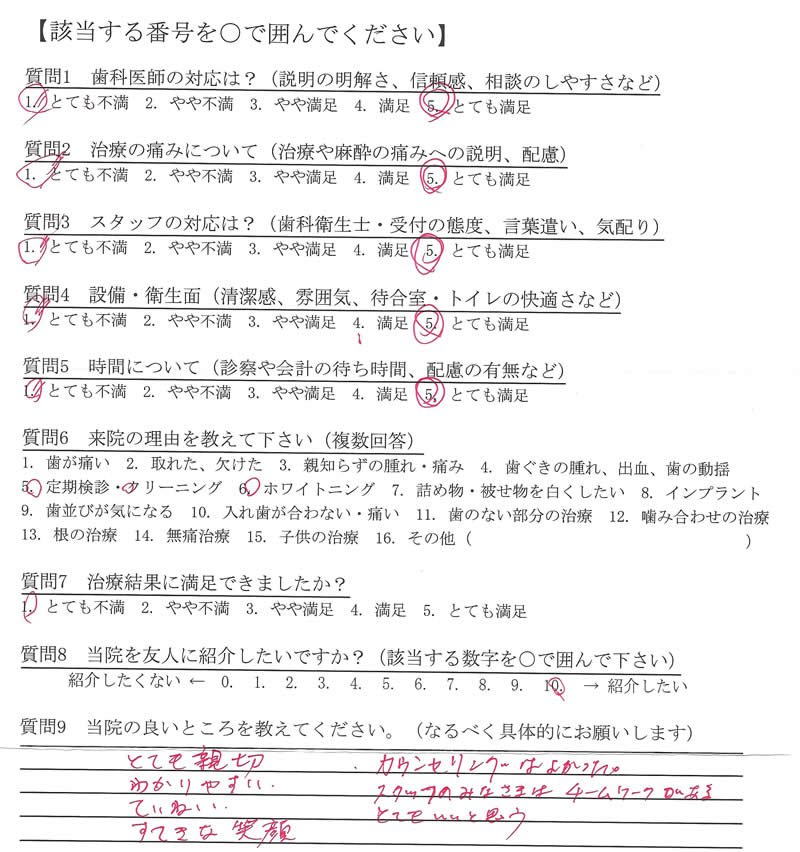 【該当する番号を〇で囲んでください】
質問1 歯科医師の対応は？（説明の明解さ、信頼感、相談のしやすさなど）
1. とても不満 2. やや不満 3. やや満足 4. 満足 5. とても満足
質問2 治療の痛みについて（治療や麻酔の痛みへの説明、配慮）
1. とても不満 2. やや不満 3. やや満足 4. 満足 5. とても満足
質問3 スタッフの対応は？（歯科衛生士・受付の態度、言葉遣い、気配り）
1. とても不満 2. やや不満 3. やや満足 4. 満足 5. とても満足
質問4 設備・衛生面（清潔感、雰囲気、待合室・トイレの快適さなど）
1. とても不満 2. やや不満 3. やや満足 4. 満足 5. とても満足
質問5 時間について（診察や会計の待ち時間、配慮の有無など）
1. とても不満 2. やや不満 3. やや満足 4. 満足 5. とても満足
質問6 来院の理由を教えて下さい（複数回答）
1. 歯が痛い 2. 取れた、欠けた 3. 親知らずの腫れ・痛み 4. 歯ぐきの腫れ、出血、歯の動揺
5. 定期検診・クリーニング 6. ホワイトニング 7. 詰め物・被せ物を白くしたい 8. インプラント
9. 歯並びが気になる 10. 入れ歯が合わない・痛い 11. 歯のない部分の治療 12. 噛み合わせの治療
13. 根の治療 14. 無痛治療 15. 子供の治療 16. その他（ ）
質問7 治療結果に満足できましたか？
1. とても不満 2. やや不満 3. やや満足 4. 満足 5. とても満足
質問8 当院を友人に紹介したいですか？（該当する数字を〇で囲んで下さい）
紹介したくない ← 0. 1. 2. 3. 4. 5. 6. 7. 8. 9. 10. → 紹介したい
質問9 当院の良いところを教えてください。（なるべく具体的にお願いします）
とても親切
わかりやすい.
ていねい.
すてきな笑顔
カウンセリングはよかった。
スタッフのみなさまはチームワークがある
とてもいいと思う